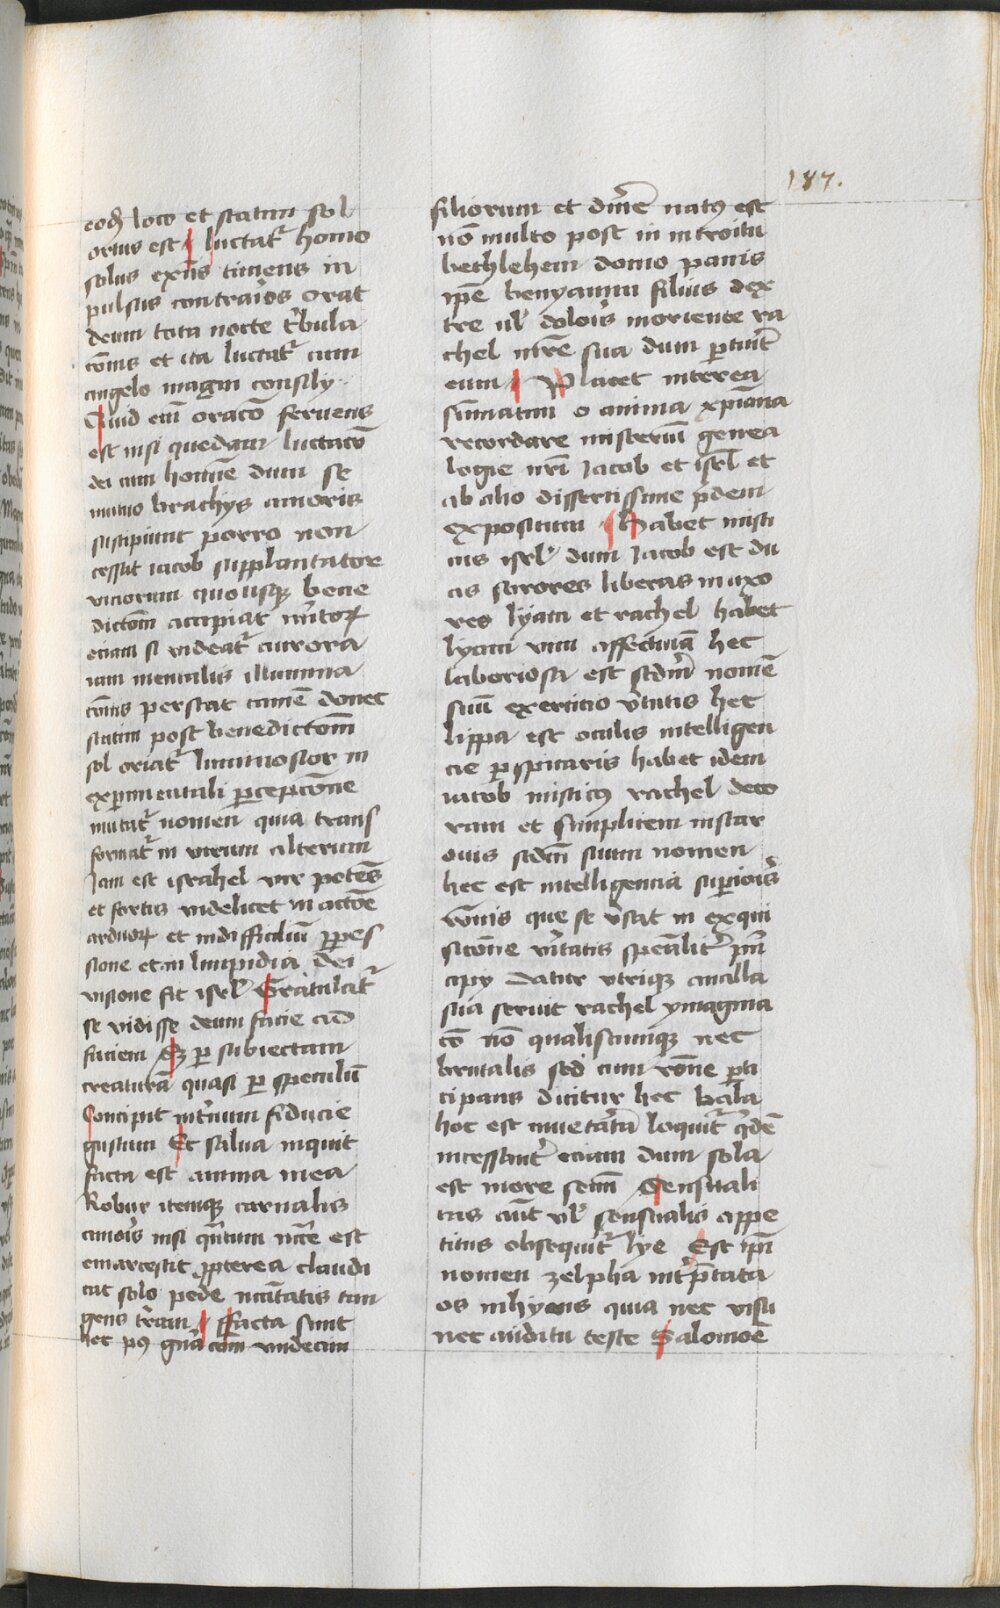 187.
eod̄ loco et statim sol
ortus est luctat᷑ homo
solus exn̄s timens in
pulsus contrarios orat
deum tota nocte t̄bula
cōnis et ita luctat᷑ cum
angelo magni consily
Quid em̄ oracō feruens
est nisi quedam luctacō
dei cum homīe dum se
mutuo brachys amoris
suscipiunt porro non
cessat iacob supplantator
viciorum quousqꝫ bene
dictōm accipiat m̄itoꝝ
eciam si videat᷑ aurora
iam mentalis illumina
cōnis perstat tamē donec
statim post benedictōm
sol oriat᷑ luminosior in
exp̄imentali p̄cepcōne
mutat᷑ nomen quia trans
format᷑ in virum alterum
Iam est israhel vir potēs
et fortis videlicet in actōe
arduoꝝ et in difficiliū ꝑpes
sione et in limpidia dei
visione fit isrl̄ Gratulat᷑
se vidisse deum facie ad
faciem Sꝫ ꝑ subiectam
creaturā quasi ꝑ speculū
Concipit int̄num fiducie
gustum Et salua inquit
facta est anima mea
Robur itemqꝫ carnalis
amoris nisi qn̄tum nc̄ie est
emarcescit ꝓpterea claudi
cat solo pede nccītatis tan
gens t̄ram Facta sunt
hec p9 gn̄acōm vndecim
filiorum et dm̄e natꝰ est
nō multo post in introitu
bethlehem domo panis
ip̄e benyamin filius dex
tre ul̄ doloris moriente ra
chel mr̄e sua dum ꝑtuīt
eum Placet interea
sūmatim o anima xp̄iana
recordare misteriū genea
logie nr̄i Iacob et isrl̄ et
ab alio dissertissime p̄dem
expositum Habet misti
cus isrl̄ dum Iacob est du
as sorores liberas in uxo
res lyam et rachel habet
lyam vim affectiuā hec
laboriosa est scdm̄ nomē
suū exercicio v̄tutis hec
lippa est oculis intelligen
cie ꝑspicacis habet idem
iacob misticꝰ rachel deco
ram et simplicem instar
ouis scdm̄ suum nomen
hec est intelligencia superioīs
rōnis que se v̄sat in exqui
sicōne v̄itatis spēalit᷑ prin
cipy Datur vtriqꝫ ancilla
sua seruit rachel ymagina
cō nō qualiscumqꝫ nec
brutalis sed cum rōne ꝑti
cipans dicitur hec bala
hoc est inuetāta loquit᷑ q̄dē
incessant᷑ eciam dum sola
est more senū Sensuali
tas aūt ul̄ sensualis appe
titus obsequit᷑ lye Est ip̄i
nomen zelpha int̄p̄tata
os inhyans quia nec visu
nec auditu teste Salomoē